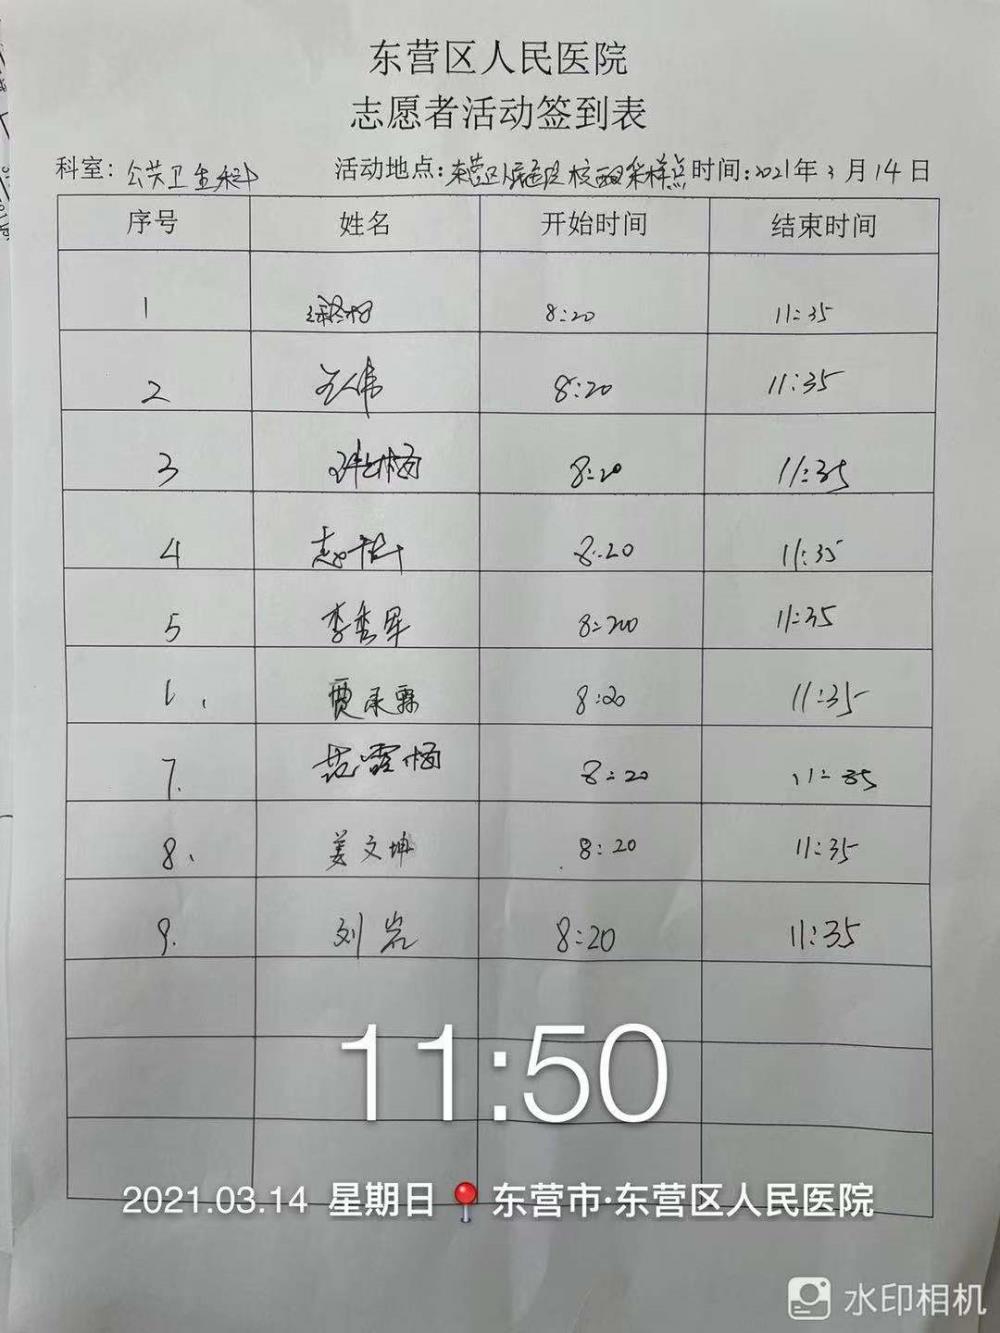 东营区人民医院
志愿者活动签到表
科室: 公共卫生科 活动地点: 东营区人民医院核酸采样点 时间: 2021年3月14日
序号 姓名 开始时间 结束时间
1 8:20 11:35
2 王伟 8:20 11:35
3 8:20 11:35
4 8:20 11:35
5 李秀军 8:20 11:35
6. 贾承霖 8:20 11:35
7. 范霞梅 8:20 11:35
8. 姜文坤 8:20 11:35
9. 刘岩 8:20 11:35
11:50
2021.03.14 星期日 东营市·东营区人民医院
水印相机